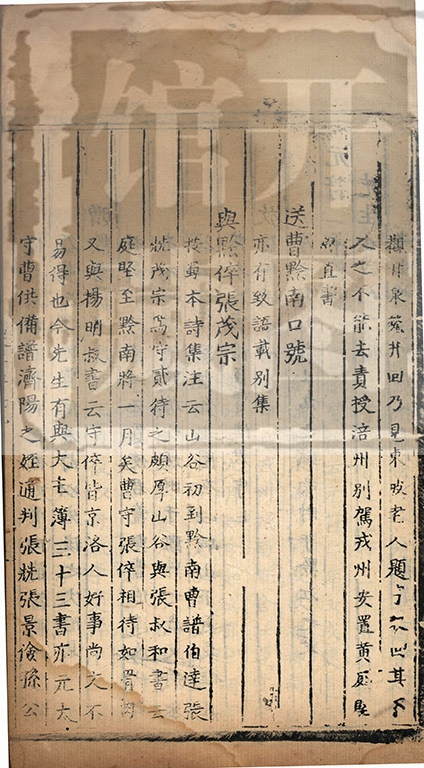 觀井泉筵井回乃見東坡老人題
久之不能去責授涪州別駕戎州安置黃庭堅
魯直書
送曹黔南口號
亦有致語載別集
與黔倅張茂宗
按蜀本詩集注云山谷初到黔南曹譜伯達張
茂宗為守貳待之頗厚山谷與張叔和書云
庭堅至黔南將一月矣曹守張倅相待如骨肉
又與楊明叔書云守倅皆京洛人好事尚文不
易得也今先生有與大主簿三十三書亦元太
守曹供備譜濟陽之姪通判張張景儉孫公